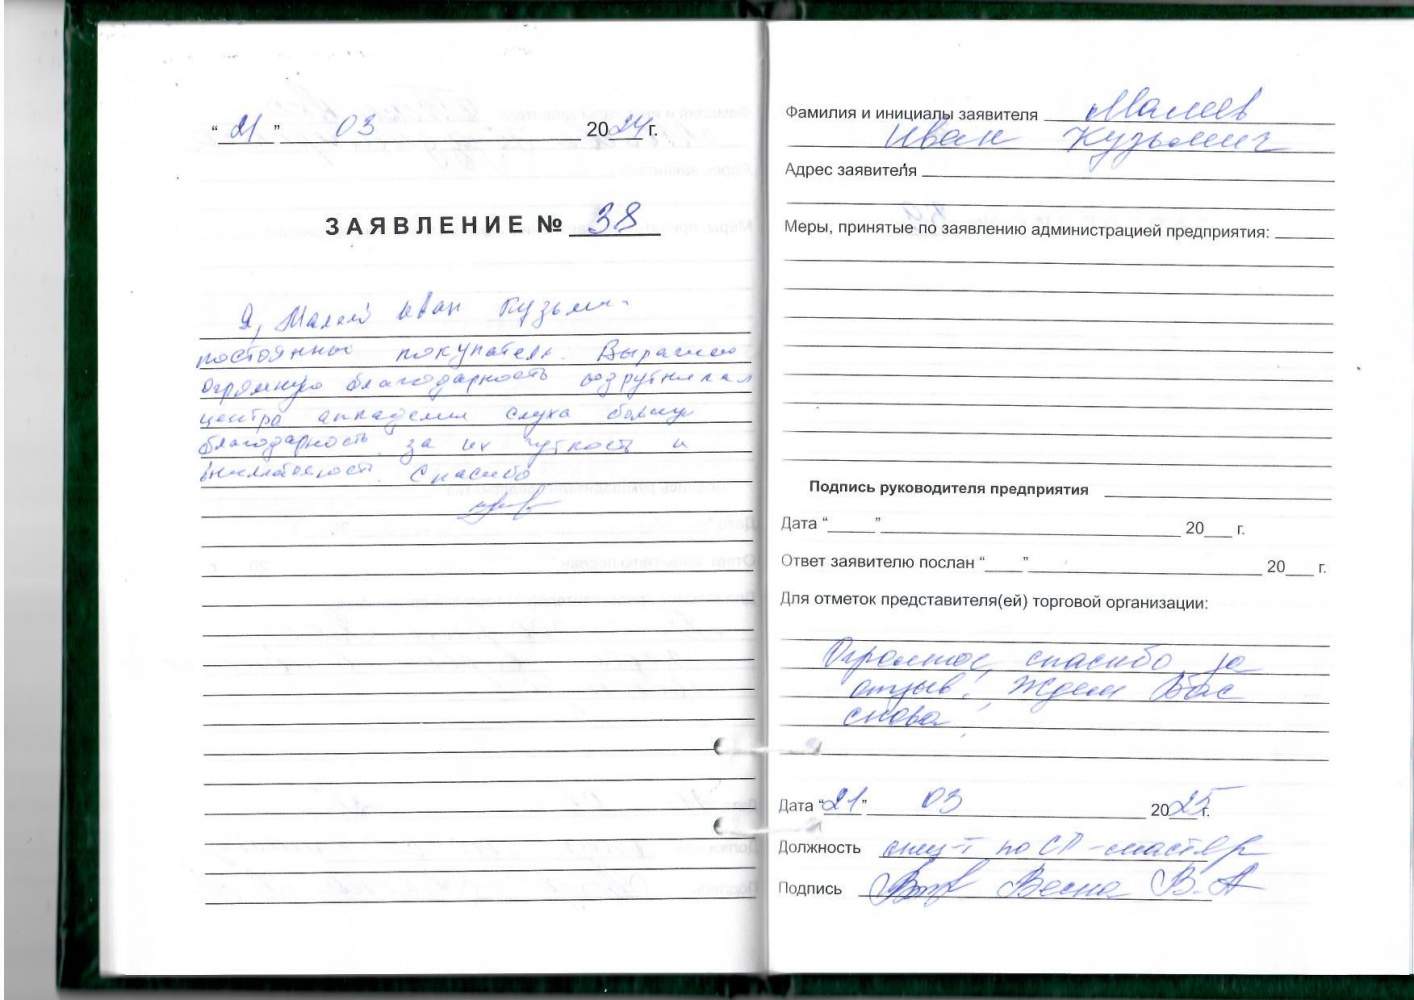 “ 21 ” 03 2024 г.
ЗАЯВЛЕНИЕ № 38
Я, Малеев Иван Кузьми
постоянный покупатель. Выражаю
Огромную благодарность
центра академия слуха большую
благодарность за их чуткость и
внимательность. Спасибо
Фамилия и инициалы заявителя Малеев
Иван Кузьмич
Адрес заявителя
Меры, принятые по заявлению администрацией предприятия:
Подпись руководителя предприятия
Дата “ ” 20 г.
Ответ заявителю послан “ ” 20 г.
Для отметок представителя(ей) торговой организации:
Огромное спасибо за
отзыв! Ждем Вас
снова!
Дата “21” 03 2025 г.
Должность спец-т по СП-мастер
Подпись Весна В.А